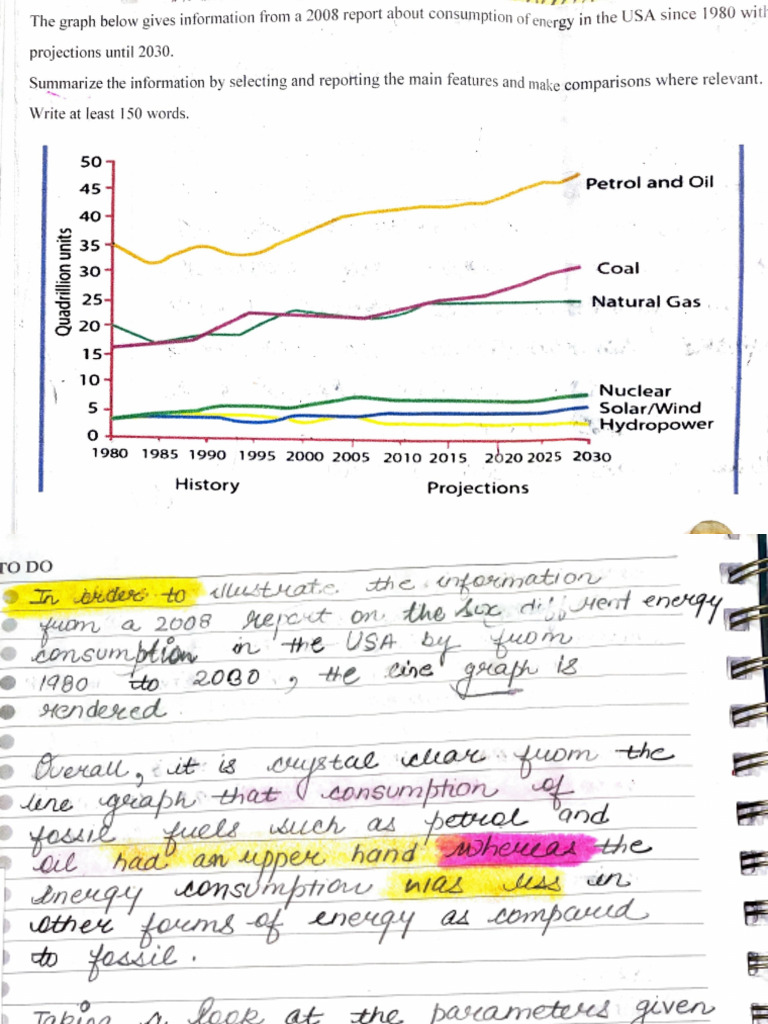 The graph below gives information from a 2008 report about consumption of energy in the USA since 1980 with
projections until 2030.
Summarize the information by selecting and reporting the main features and make comparisons where relevant.
Write at least 150 words.
50
45
40
35
30
25
20
15
10
5
0
Quadrillion units
Petrol and Oil
Coal
Natural Gas
Nuclear
Solar/Wind
Hydropower
1980 1985 1990 1995 2000 2005 2010 2015 2020 2025 2030
History Projections
TO DO
In order to illustrate the information
from a 2008 report on the six different energy
consumption in the USA by from
1980 to 2030, the line graph is
rendered.
Overall, it is crystal clear from the
line graph that consumption of
fossil fuels such as petrol and
oil had an upper hand whereas the
energy consumption was less in
other forms of energy as compared
to fossil.
Taking a look at the parameters given